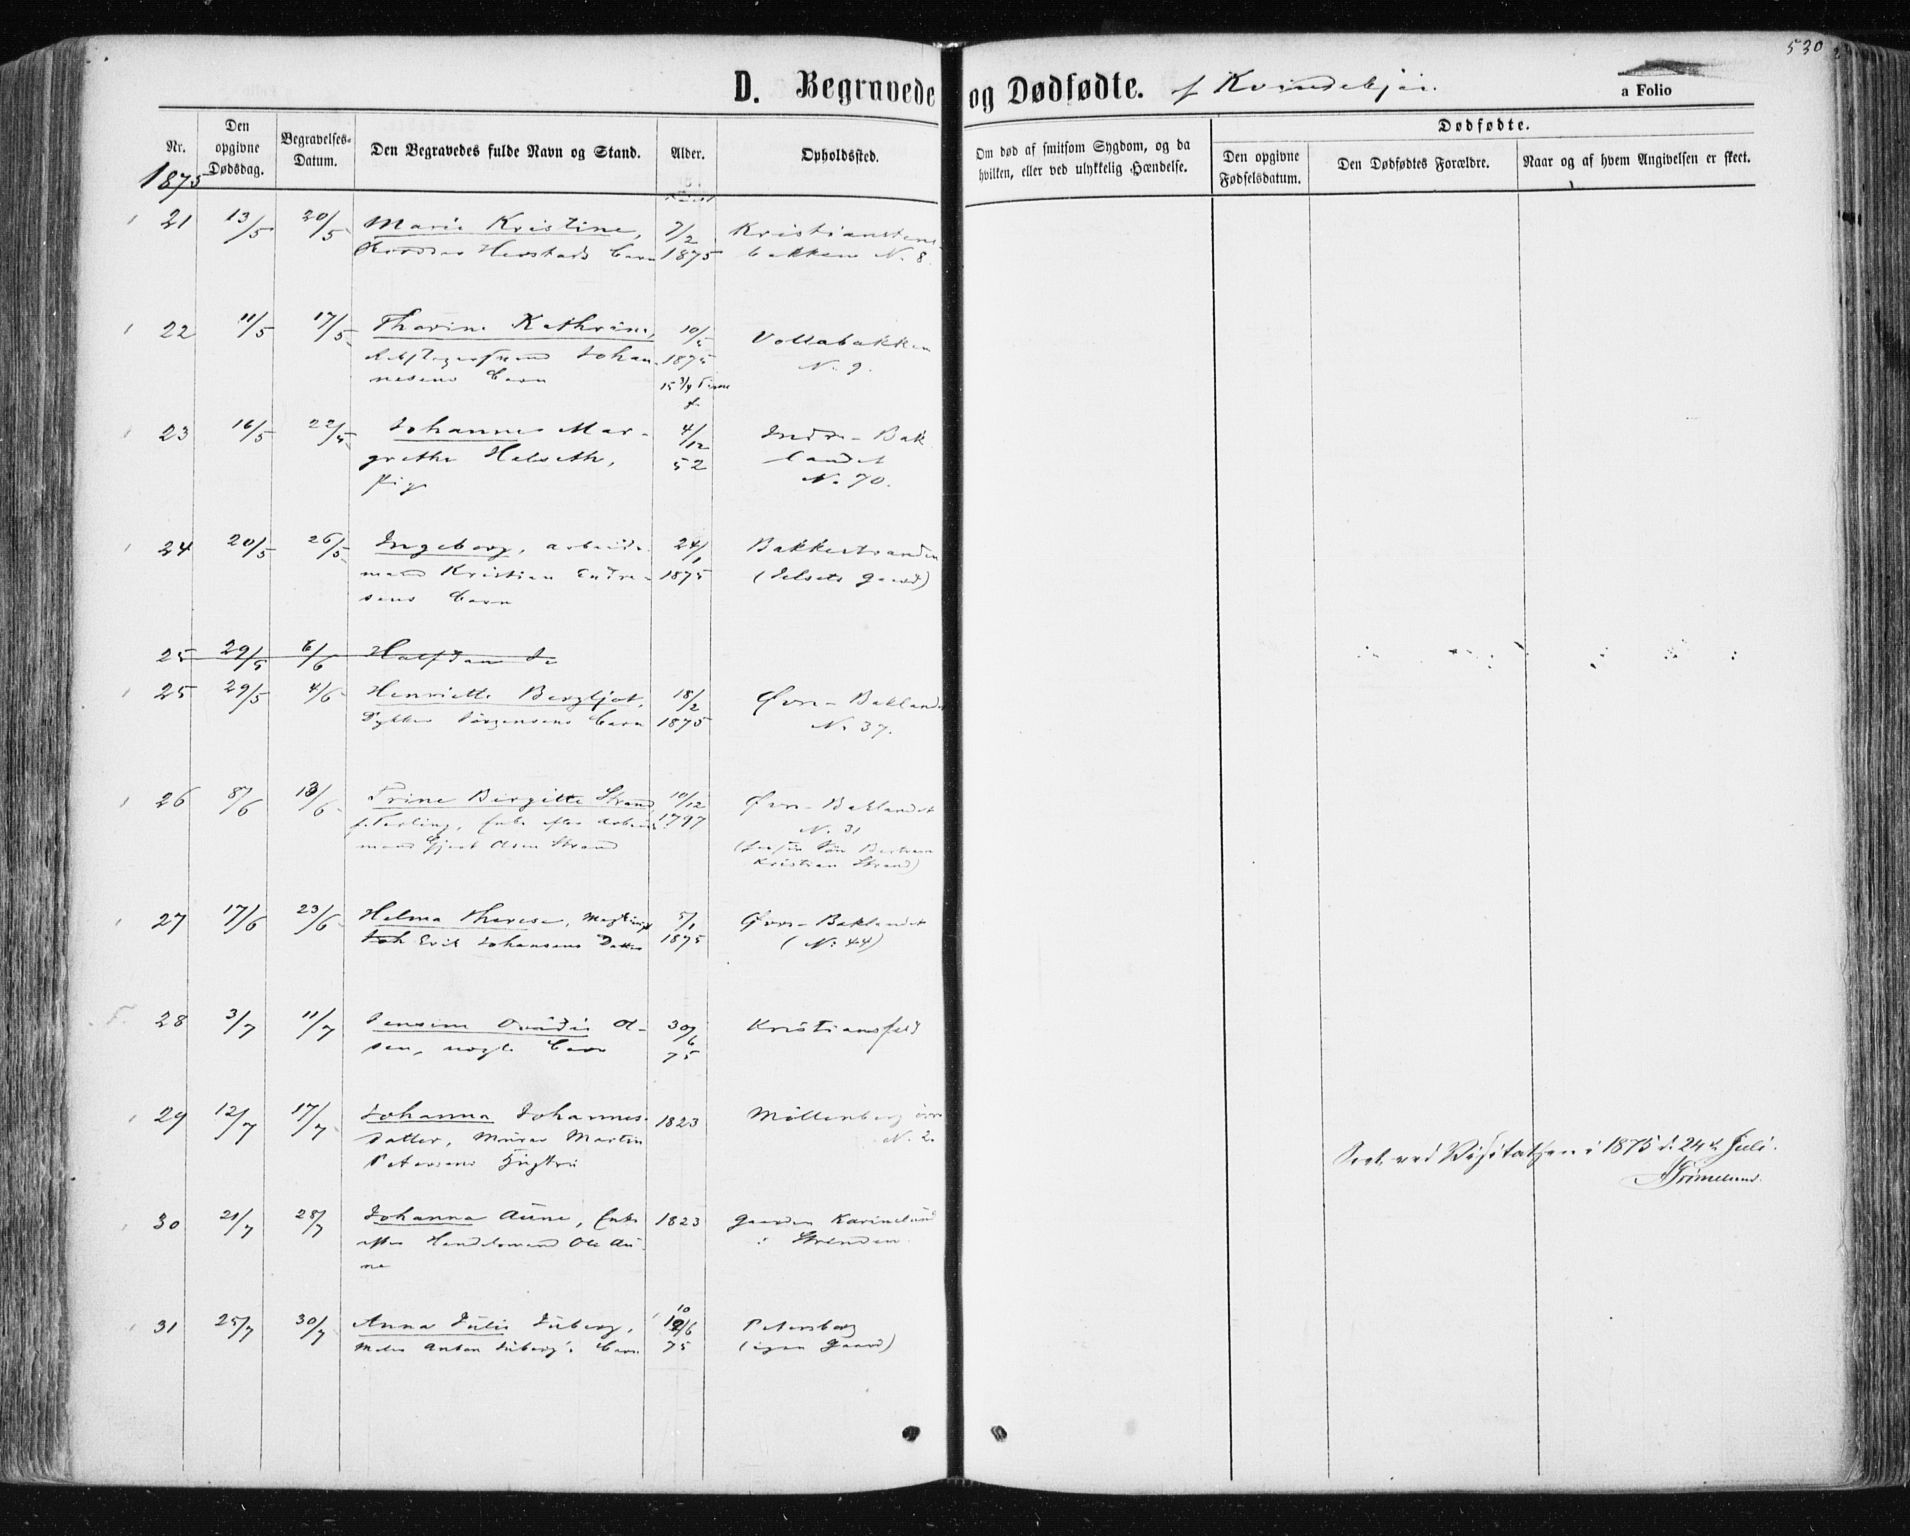 530
D. Begravede og Dødfødte. af Kvindekjøn.
a Folio
Nr.
Den opgivne Dødsdag.
Begravelses-Datum.
Den Begravedes fulde Navn og Stand.
Alder.
Opholdssted.
Om død af smitsom Sygdom, og da hvilken, eller ved ulykkelig Hændelse.
Dødfødte.
Den opgivne Fødselsdatum.
Den Dødfødtes Forældre.
Naar og af hvem Angivelsen er skeet.
1875
21 13/5 20/5 Marie Kristine, 7/2 Kristianstens-
Barn 1875 bakken N. 8.
22 11/5 17/5 Thorine Kathrine, 10/5 Vollabakken
Johan- 1875 N. 9.
nesens Barn 15 3/4 Time
23 16/5 22/5 Johanne Mar- 4/12 Indre-Bak
grethe Helseth, 52 landet
Pige N. 70.
24 20/5 26/5 Ingeborg, arbeids- 24/1 Bakkestranden
mand Kristian Endre- 1875 (Jelsets Gaard)
sens Barn
25 29/5 6/6 Halfdan
25 29/5 4/6 Henriette Bergljot, 18/2 Øvre-Baklandet
Dykker Jørgensens Barn 1875 N. 37.
26 8/6 13/6 Trine Birgitte Strand 10/12 Øvre-Baklandet
Enke efter Arbeids- 1797 N. 31
mand Strand
Kristian Strand)
27 17/6 23/6 Helma Therese, 5/1 Øvre-Baklandet
Joh Erik Johansens Datter 1875 (N. 44)
28 3/7 11/7 Jensine Ovidie Ol- 30/6 Kristiansfeld
sen, uægte Barn 75
29 12/7 17/7 Johanna Johannes- 1823 Møllenberg øvre
datter, Murer Martin N. 2.
Petersens Hustru
Seet ved Visitatsen i 1875 d. 24de Juli.
Grimelund.
30 21/7 28/7 Johanna Aune, Enke 1823 Gaarden Karinelund
efter Handelsmand Ole Au- i Strinden
ne
31 25/7 30/7 Anna Julie Juberg, 10/6 Petersborg
Maler Anton Juberg's Barn 75 (egen Gaard)